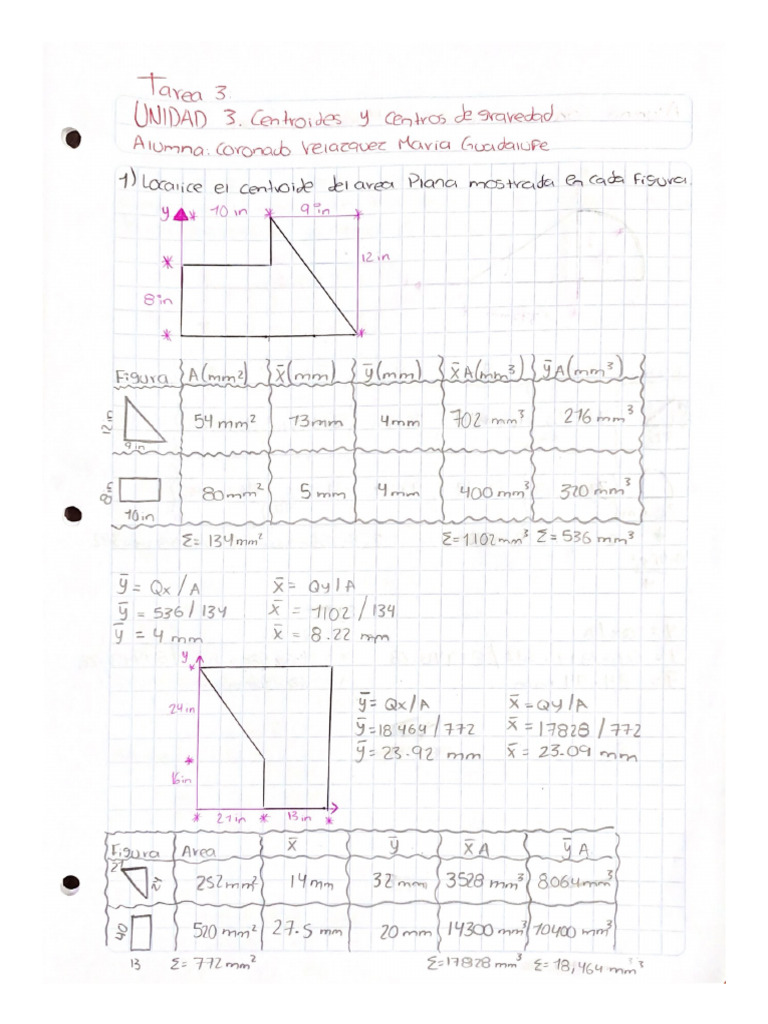 Tarea 3.
UNIDAD 3. Centroides y centros de gravedad
Alumna: Coronado Velazquez Maria Guadalupe
1) Localice el centroide del area Plana mostrada en cada Figura.
y 10 in 9 in
12 in
8 in
Figura A(mm²) x̄(mm) ȳ(mm) x̄A(mm³) ȳA(mm³)
12 in 9 in 54 mm² 13mm 4mm 702 mm³ 216 mm³
8in 10in 80mm² 5 mm 4mm 400 mm³ 320 mm³
Σ= 134mm² Σ=1102mm³ Σ= 536 mm³
ȳ= Qx/A x̄= Qy/A
ȳ= 536/134 x̄= 1102/134
ȳ= 4 mm x̄= 8.22 mm
y
24in
16in
21in 13in
ȳ= Qx/A x̄=Qy/A
ȳ=18464/772 x̄=17828/772
ȳ=23.92 mm x̄=23.09 mm
Figura Area x̄ ȳ x̄A ȳA
21 252mm² 14mm 32 mm 3528 mm³ 8064mm³
40 13 520 mm² 27.5 mm 20mm 14300 mm³ 10400 mm³
Σ= 772mm² Σ=17828mm³ Σ= 18,464 mm³